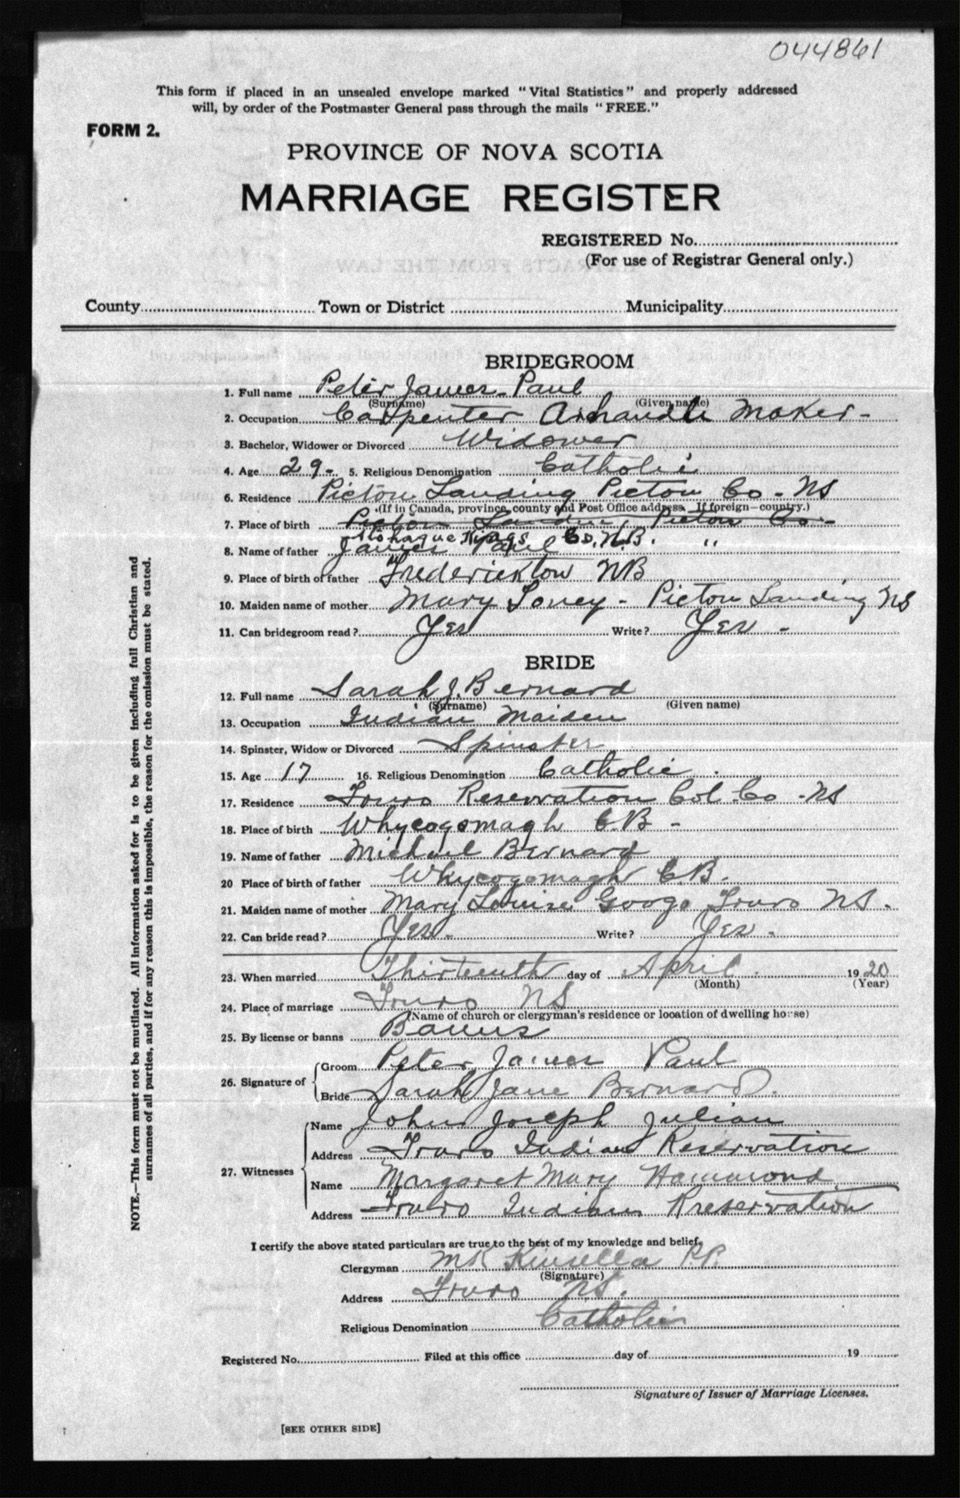 044861
This form if placed in an unsealed envelope marked "Vital Statistics" and properly addressed
will, by order of the Postmaster General pass through the mails "FREE."
FORM 2.
PROVINCE OF NOVA SCOTIA
MARRIAGE REGISTER
REGISTERED No.
(For use of Registrar General only.)
County Town or District Municipality
BRIDEGROOM
1. Full name Peter James Paul
(Surname) (Given name)
2. Occupation Carpenter Axhandle Maker -
3. Bachelor, Widower or Divorced Widower
4. Age 29 - 5. Religious Denomination Catholic
6. Residence Pictou Landing Pictou Co - NS
(If in Canada, province, county and Post Office address. If foreign—country.)
7. Place of birth Pictou Landing, Pictou Co -
Kings Co. N.B. "
8. Name of father James Paul
9. Place of birth of father Frederickton NB
10. Maiden name of mother Mary Toney - Pictou Landing NS
11. Can bridegroom read? Yes Write? Yes -
BRIDE
12. Full name Sarah J. Bernard
(Surname) (Given name)
13. Occupation Indian Maiden
14. Spinster, Widow or Divorced Spinster
15. Age 17 16. Religious Denomination Catholic .
17. Residence Truro Reservation Col. Co - NS
18. Place of birth Whycogomagh C.B -
19. Name of father Michael Bernard
20 Place of birth of father Whycogomagh C.B.
21. Maiden name of mother Mary Louise Googo Truro NS.
22. Can bride read? Yes - Write? Yes -
23. When married Thirteenth day of April . 1920
(Month) (Year)
24. Place of marriage Truro NS
(Name of church or clergyman's residence or location of dwelling house)
25. By license or banns Banns
26. Signature of Groom Peter James Paul
Bride Sarah Jane Bernard.
27. Witnesses Name John Joseph Julian
Address Truro Indian Reservation
Name Margaret Mary Hammond
Address Truro Indian Rreservation
I certify the above stated particulars are true to the best of my knowledge and belief.
Clergyman Kinsella P.P.
(Signature)
Address Truro NS.
Religious Denomination Catholic
Registered No. Filed at this office day of 19
Signature of Issuer of Marriage Licenses.
[SEE OTHER SIDE]
NOTE.—This form must not be mutilated. All information asked for is to be given including full Christian and
surnames of all parties, and if for any reason this is impossible, the reason for the omission must be stated.